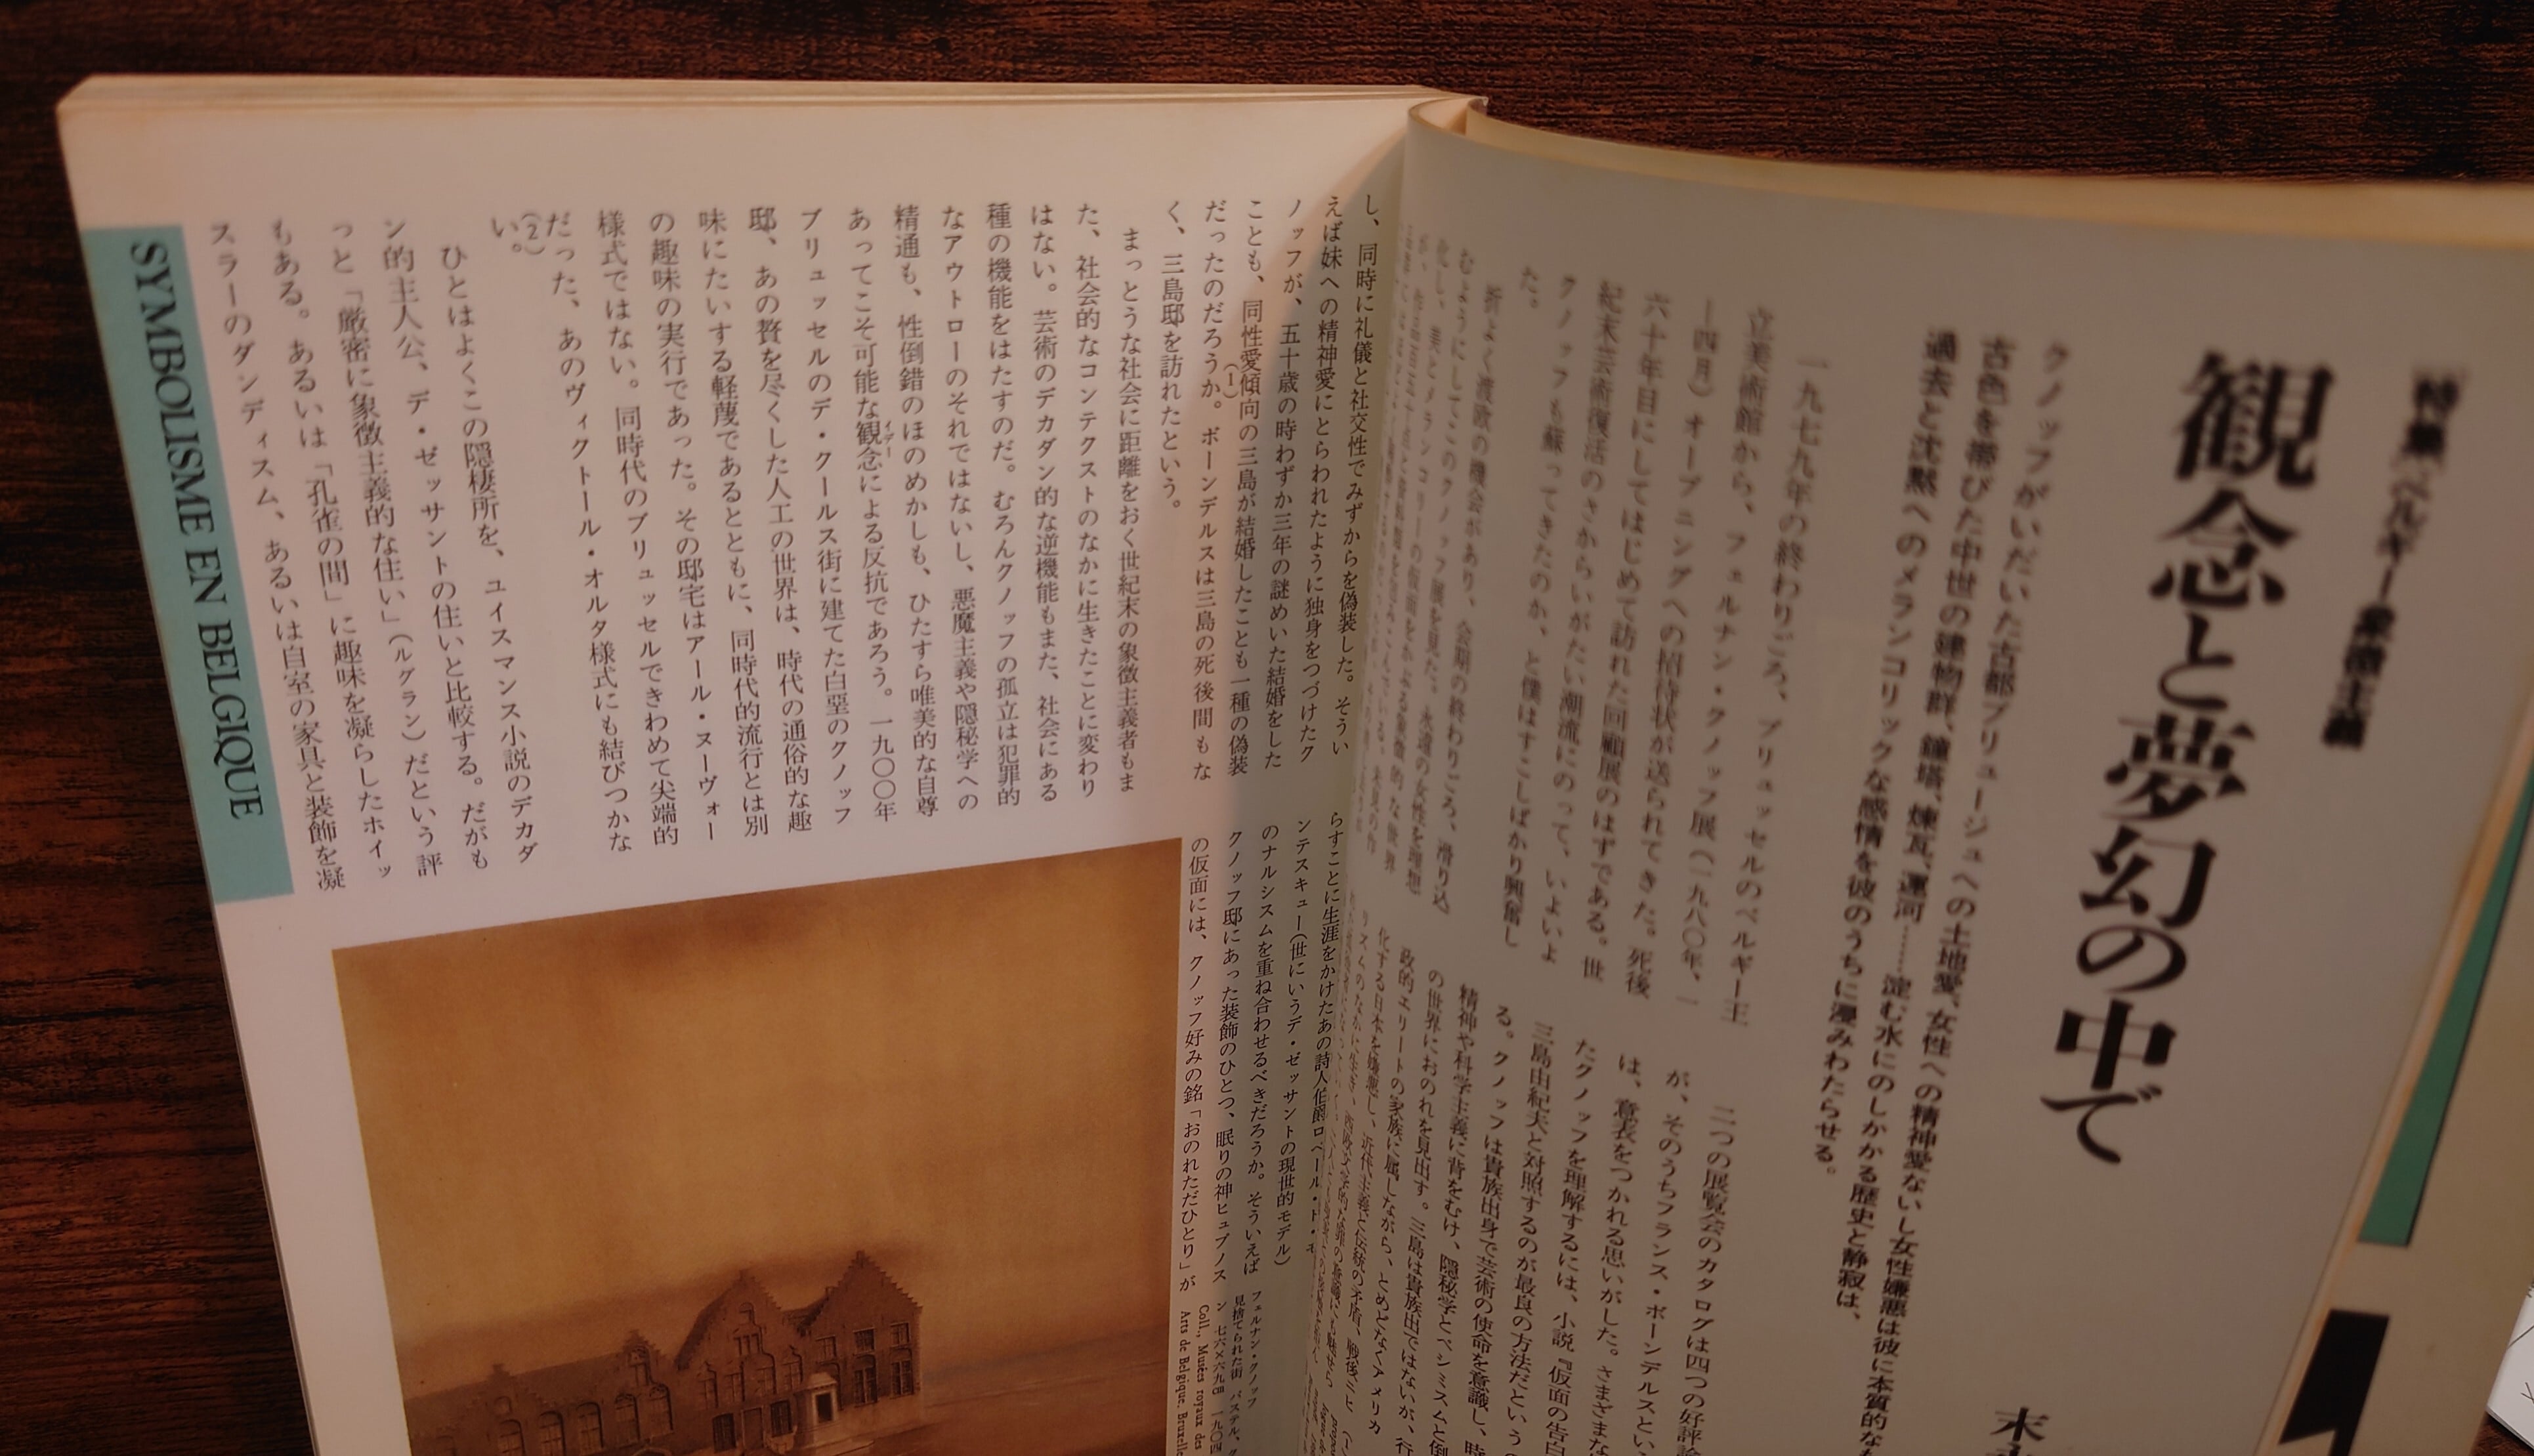 特集 ベルギー象徴主義
観念と夢幻の中で
末
クノッフがいだいた古都ブリュージュへの土地愛、女性への精神愛ないし女性嫌悪は彼に本質的な
古色を帯びた中世の建物群、鐘塔、煉瓦、運河……淀む水にのしかかる歴史と静寂は、
過去と沈黙へのメランコリックな感情を彼のうちに浸みわたらせる。
一九七九年の終わりごろ、ブリュッセルのベルギー王
立美術館から、フェルナン・クノッフ展(一九八〇年、一
―四月)オープニングへの招待状が送られてきた。死後
六十年目にしてはじめて訪れた回顧展のはずである。世
紀末芸術復活のさからいがたい潮流にのって、いよいよ
クノッフも蘇ってきたのか、と僕はすこしばかり興奮し
た。
折よく渡欧の機会があり、会期の終わりごろ、滑り込
むようにしてこのクノッフ展を見た。永遠の女性を理想
化し、美とメランコリーの仮面をかぶる象徴的な世界
二つの展覧会のカタログは四つの好評論
が、そのうちフランス・ボーンデルスとい
は、意表をつかれる思いがした。さまざまな
たクノッフを理解するには、小説『仮面の告白
三島由紀夫と対照するのが最良の方法だという
る。クノッフは貴族出身で芸術の使命を意識し、時
精神や科学主義に背をむけ、隠秘学とペシミスムと倒
の世界におのれを見出す。三島は貴族出ではないが、行
政的エリートの家族に属しながら、とめどなくアメリカ
化する日本を嫌悪し、近代主義と伝統の矛盾、戦後ニヒ
し、同時に礼儀と社交性でみずからを偽装した。そうい
えば妹への精神愛にとらわれたように独身をつづけたク
ノッフが、五十歳の時わずか三年の謎めいた結婚をした
ことも、同性愛傾向の三島が結婚したことも一種の偽装
だったのだろうか。(1)ボーンデルスは三島の死後間もな
く、三島邸を訪れたという。
まっとうな社会に距離をおく世紀末の象徴主義者もま
た、社会的なコンテクストのなかに生きたことに変わり
はない。芸術のデカダン的な逆機能もまた、社会にある
種の機能をはたすのだ。むろんクノッフの孤立は犯罪的
なアウトローのそれではないし、悪魔主義や隠秘学への
精通も、性倒錯のほのめかしも、ひたすら唯美的な自尊
あってこそ可能な観念イデーによる反抗であろう。一九〇〇年
ブリュッセルのデ・クールス街に建てた白堊のクノッフ
邸、あの贅を尽くした人工の世界は、時代の通俗的な趣
味にたいする軽蔑であるとともに、同時代的流行とは別
の趣味の実行であった。その邸宅はアール・ヌーヴォー
様式ではない。同時代のブリュッセルできわめて尖端的
だった、あのヴィクトール・オルタ様式にも結びつかな
い。(2)
ひとはよくこの隠棲所を、ユイスマンス小説のデカダ
ン的主人公、デ・ゼッサントの住いと比較する。だがも
っと「厳密に象徴主義的な住い」(ルグラン)だという評
もある。あるいは「孔雀の間」に趣味を凝らしたホイッ
スラーのダンディスム、あるいは自室の家具と装飾を凝
らすことに生涯をかけたあの詩人伯爵ロベール・ド・モ
ンテスキュー(世にいうデ・ゼッサントの現世的モデル)
のナルシスムを重ね合わせるべきだろうか。そういえば
クノッフ邸にあった装飾のひとつ、眠りの神ヒュプノス
の仮面には、クノッフ好みの銘「おのれただひとり」が
フェルナン・クノッフ
見捨てられた街 パステル、ク
ン 七六×六九cm 一九〇四
Coll., Musées royaux des
Arts de Belgique, Bruxelle
SYMBOLISME EN BELGIQUE